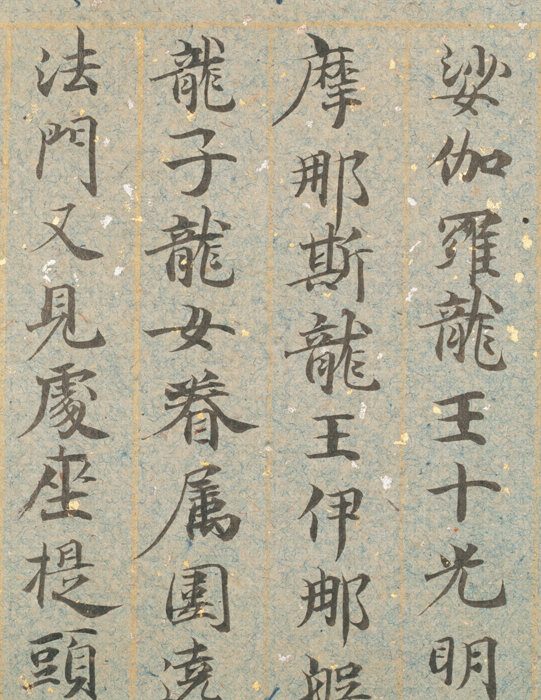 娑伽羅龍王十光明
摩那斯龍王伊那
龍子龍女眷属圍遶
法門又見處座提頭